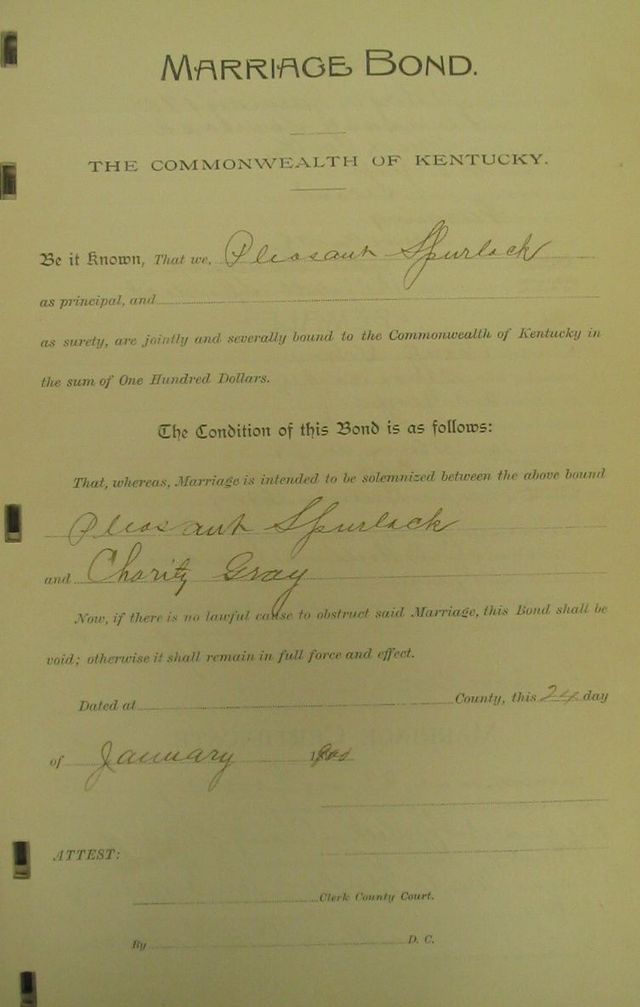 MARRIAGE BOND.
THE COMMONWEALTH OF KENTUCKY.
Be it Known, That we, Pleasant Spurlock
as principal, and
as surety, are jointly and severally bound to the Commonwealth of Kentucky in
the sum of One Hundred Dollars.
The Condition of this Bond is as follows:
That, whereas, Marriage is intended to be solemnized between the above bound
Pleasant Spurlock
and Charity Gray
Now, if there is no lawful cause to obstruct said Marriage, this Bond shall be
void; otherwise it shall remain in full force and effect.
Dated at County, this 24 day
of January
ATTEST:
Clerk County Court.
By D. C.